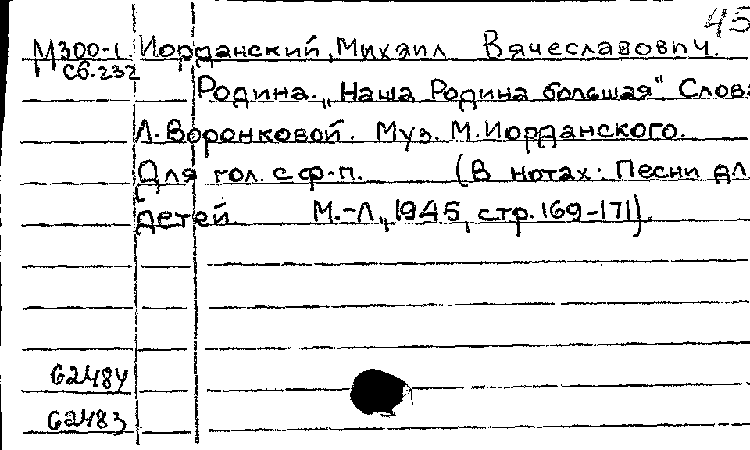 45
М300-1 Иорданский, Михаил Вячеславович.
Сб.232
Родина. „Наша Родина большая" Слова
Л. Воронковой. Муз. М. Иорданского.
Для гол. с ф-п. (В нотах: Песни дл
детей. М.-Л., 1945, стр. 169-171).
62484
62483